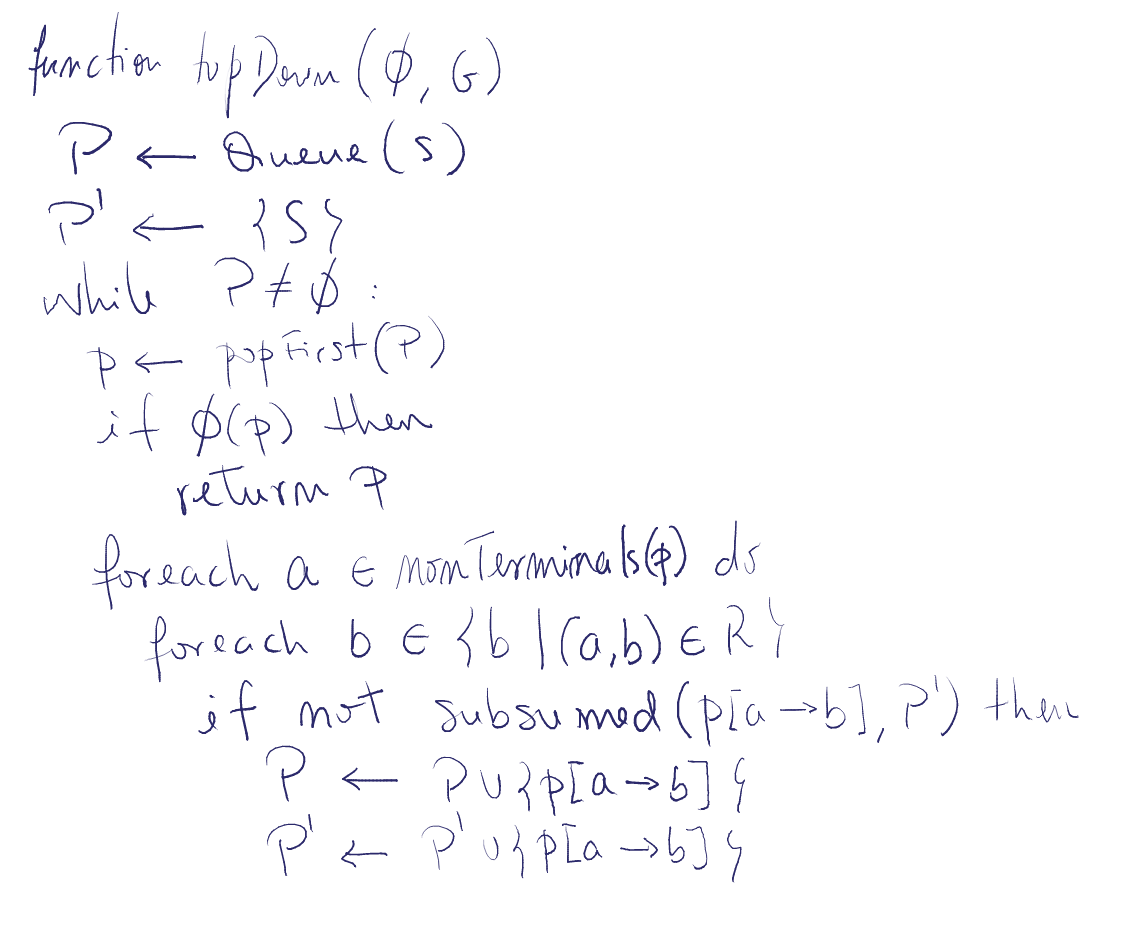 function topDown(ϕ, G)
P ← Queue(S)
P' ← {S}
while P ≠ ∅ :
p ← popFirst(P)
if ϕ(p) then
return p
foreach a ∈ nonTerminals(p) do
foreach b ∈ {b | (a,b) ∈ R}
if not subsumed(p[a→b], P') then
P ← P ∪ {p[a→b]}
P' ← P' ∪ {p[a→b]}